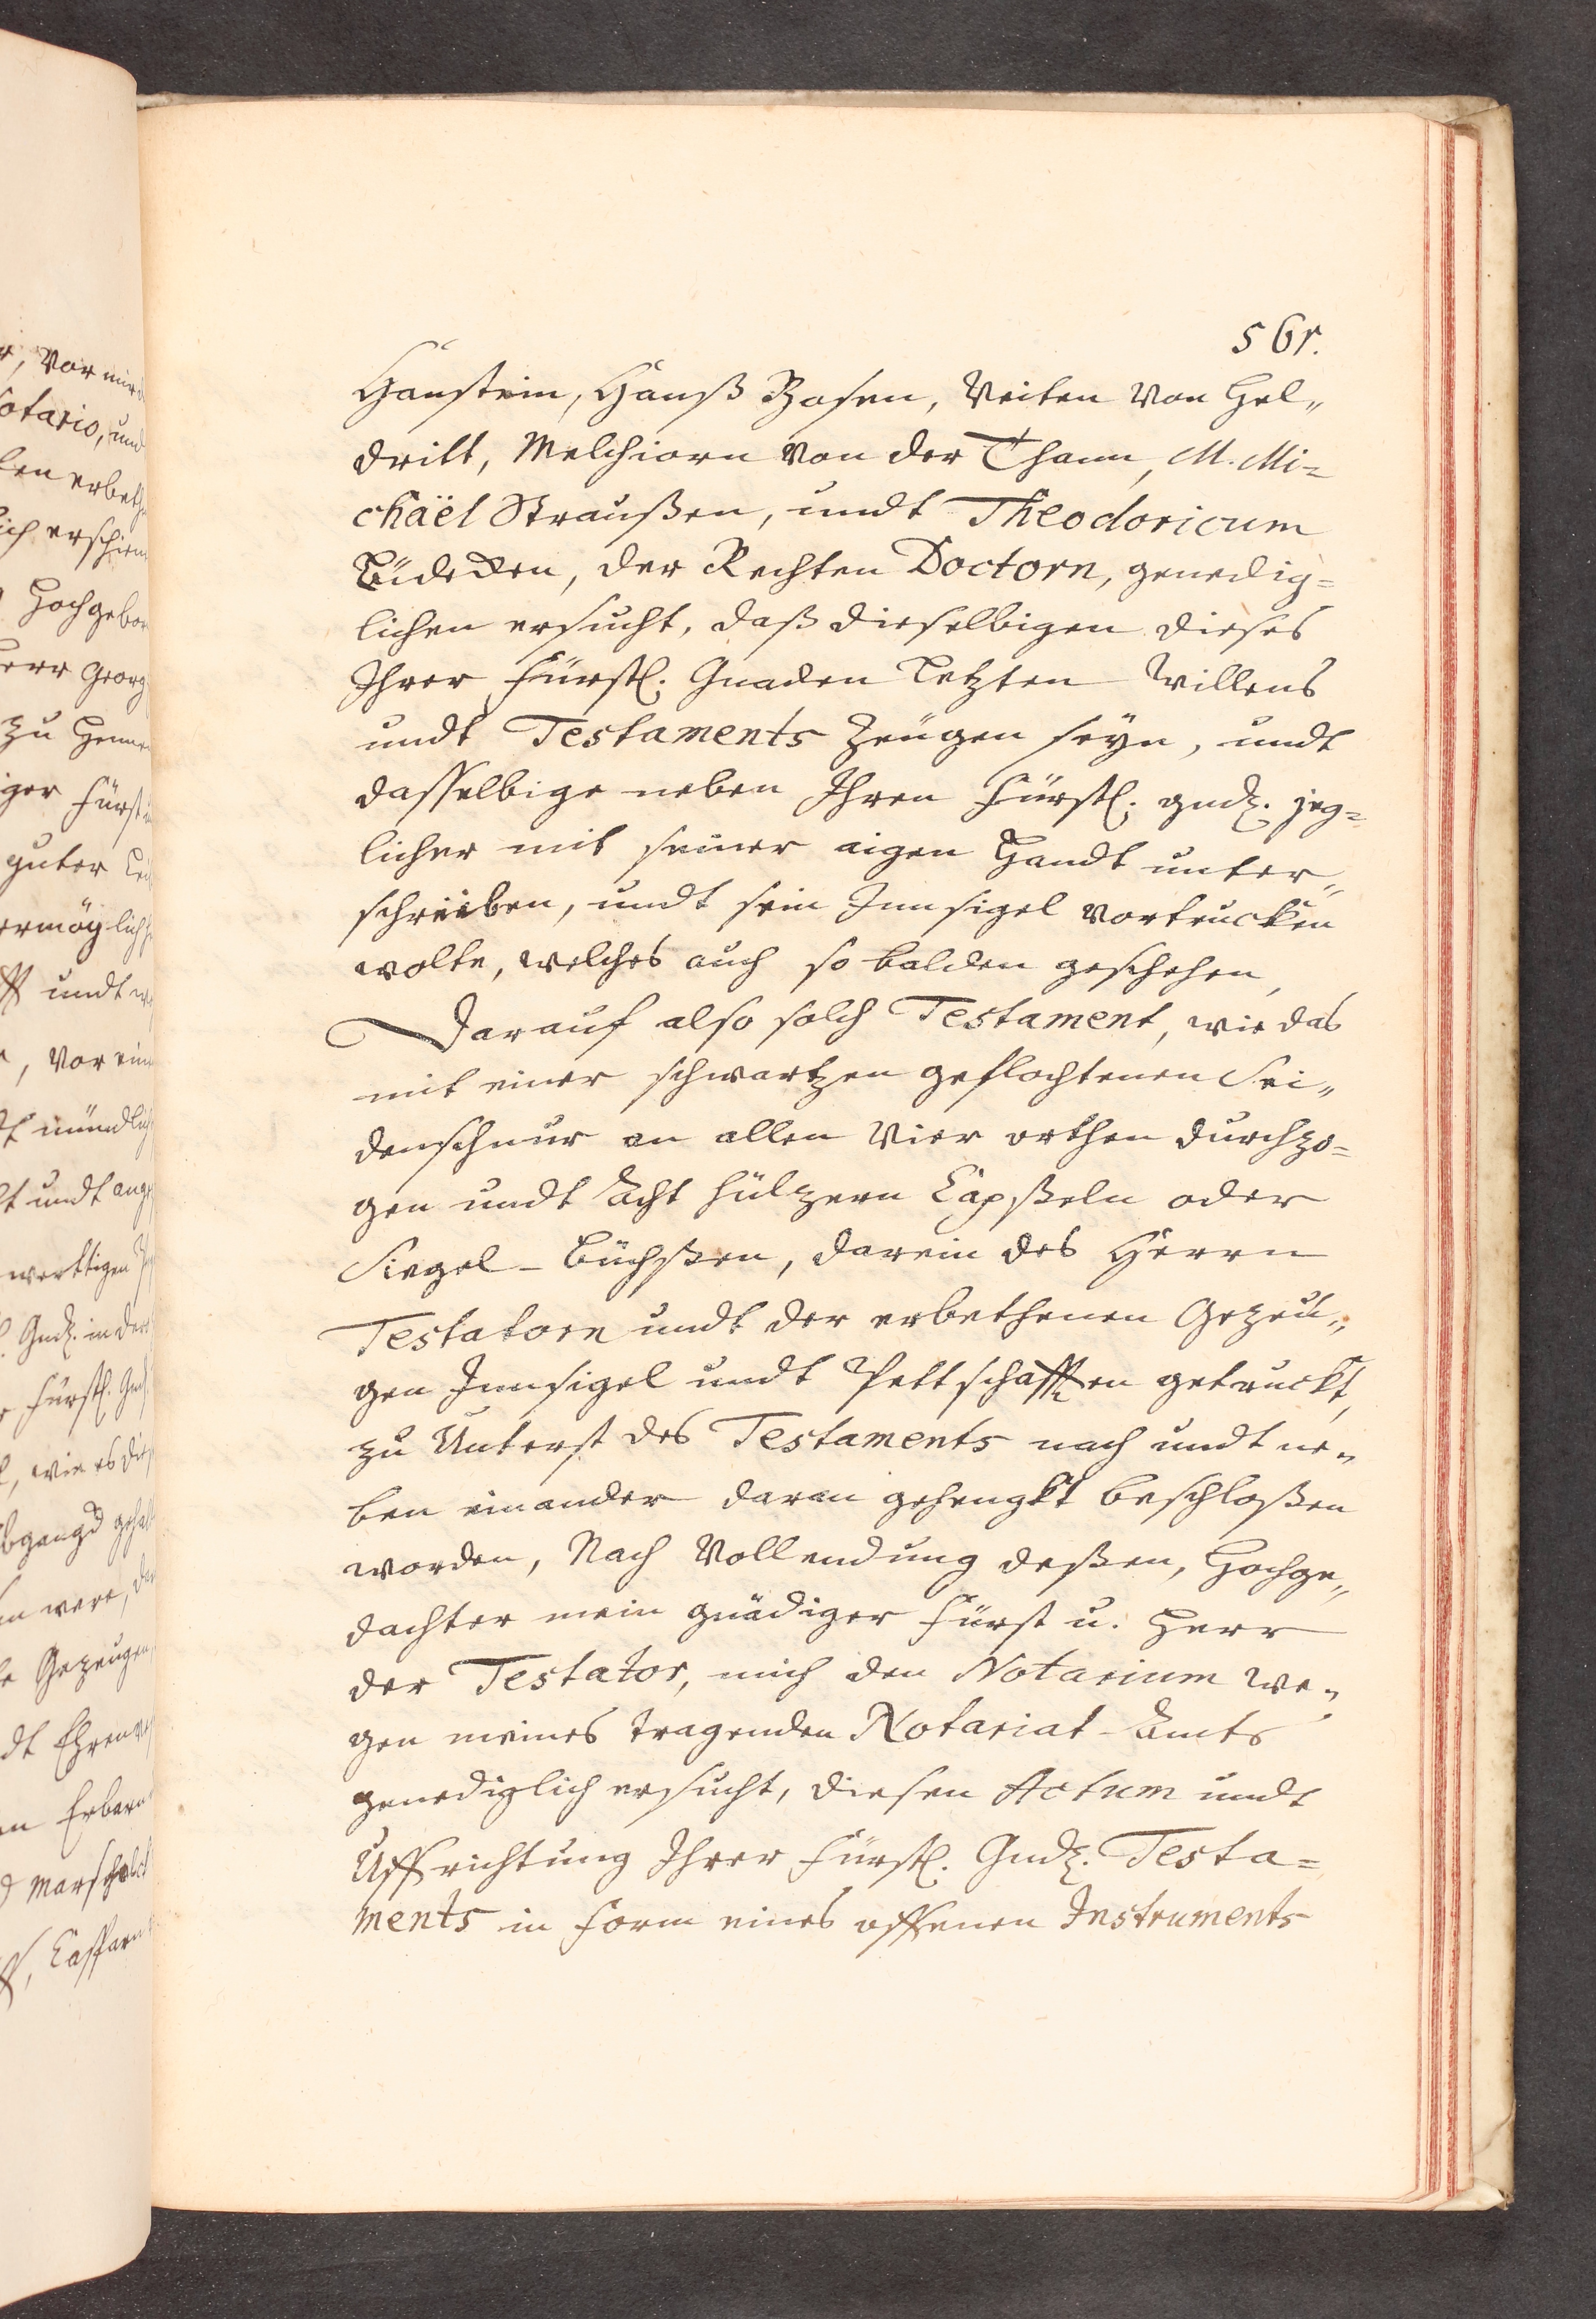 561.
Hanstein, Hanß Zosen, Veiten von Hel„
dritt, Melchiorn von der Thann, M. Mi=
chaël Straußen, undt Theodoricum
der Rechten Doctorn, genedig=
lichen ersucht, daß dieselbigen dieses
Ihrer Fürstl. Gnaden Letzten Willens
undt Testaments Zeugen seyn, undt
dasselbige neben Ihren Fürstl. gndl. jeg=
licher mit seiner aigen Handt unter„
schreiben, undt sein Innsigel vortrucken
wolte, welches auch so balden geschehen,
Darauf also solch Testament, wie das
mit einer schwartzen geflochtenen Sei„
denschnur an allen Vier orthen durchzo=
gen undt Acht hültzern Capßeln oder
Siegel-Büchßen, darein des Herrn
Testatorn undt der erbethenen Gezeu„
gen Innsigel undt Pettschafften getruckt,
zu Unterst des Testaments nach undt ne„
ben einander daran gehengkt beschloßen
worden, Nach Vollendung deßen, Hochge„
dachter mein gnädiger Fürst u. Herr
der Testator, mich den Notarium we„
gen meines tragenden Notariat-Ambts
genediglich ersucht, diesen Actum undt
Uffrichtung Ihrer Fürstl. Gndl. Testa=
ments in Form eines offenen Instruments